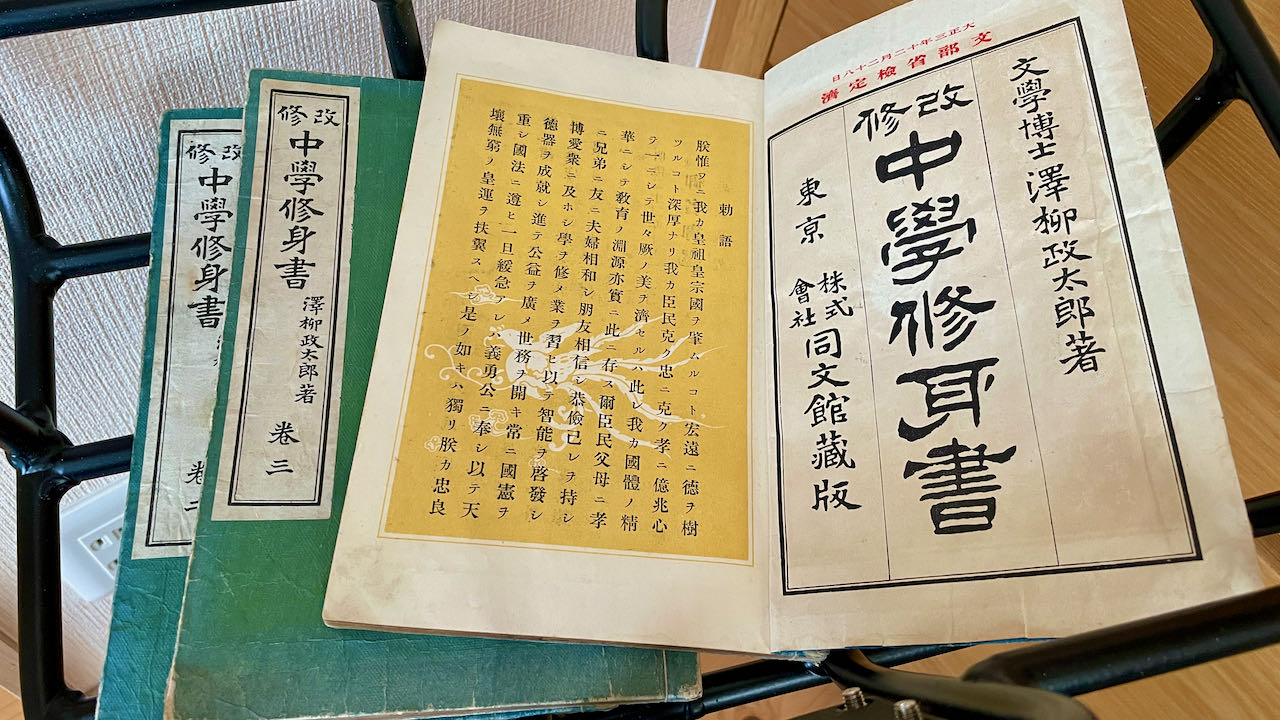 大正三年十二月二十八日
文部省檢定濟
文學博士澤柳政太郎著
改修
中學修身書
東京
株式
會社
同文館藏版
勅語
朕惟フニ我カ皇祖皇宗國ヲ肇ムルコト宏遠ニ德ヲ樹
ツルコト深厚ナリ我カ臣民克ク忠ニ克ク孝ニ億兆心
ヲ一ニシテ世々厥ノ美ヲ濟セルハ此レ我カ國體ノ精
華ニシテ敎育ノ淵源亦實ニ此ニ存ス爾臣民父母ニ孝
ニ兄弟ニ友ニ夫婦相和シ朋友相信シ恭儉己レヲ持シ
博愛衆ニ及ホシ學ヲ修メ業ヲ習ヒ以テ智能ヲ啓發シ
德器ヲ成就シ進テ公益ヲ廣メ世務ヲ開キ常ニ國憲ヲ
重シ國法ニ遵ヒ一旦緩急アレハ義勇公ニ奉シ以テ天
壤無窮ノ皇運ヲ扶翼スヘシ是ノ如キハ獨リ朕カ忠良
改修
中學修身書
澤柳政太郎著
卷三
改修
中學修身書